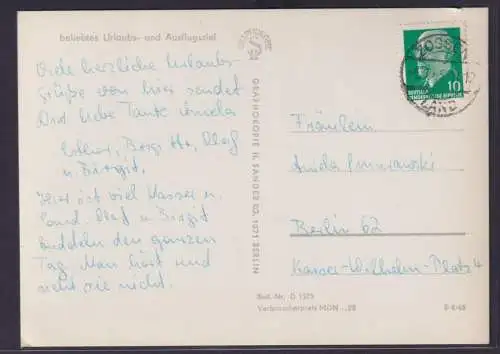 beliebtes Urlaubs- und Ausflugsziel
Viele herzliche Urlaubs-
grüße von hier sendet
Dir liebe Tante
Olaf
u. Birgit,
Hier ist viel Wasser u.
Sand. Olaf u. Birgit
buddeln den ganzen
Tag. Man hört und
sieht sie nicht.
GRAPHOKOPIE H. SANDER KG, 1071 BERLIN
ZOSSEN
LAND
DEUTSCHE
DEMOKRATISCHE REPUBLIK
10
Fräulein
Berlin 62
Kaiser-Wilhelm-Platz 4
Best.-Nr. D 1525
Verbraucherpreis MDN -,20